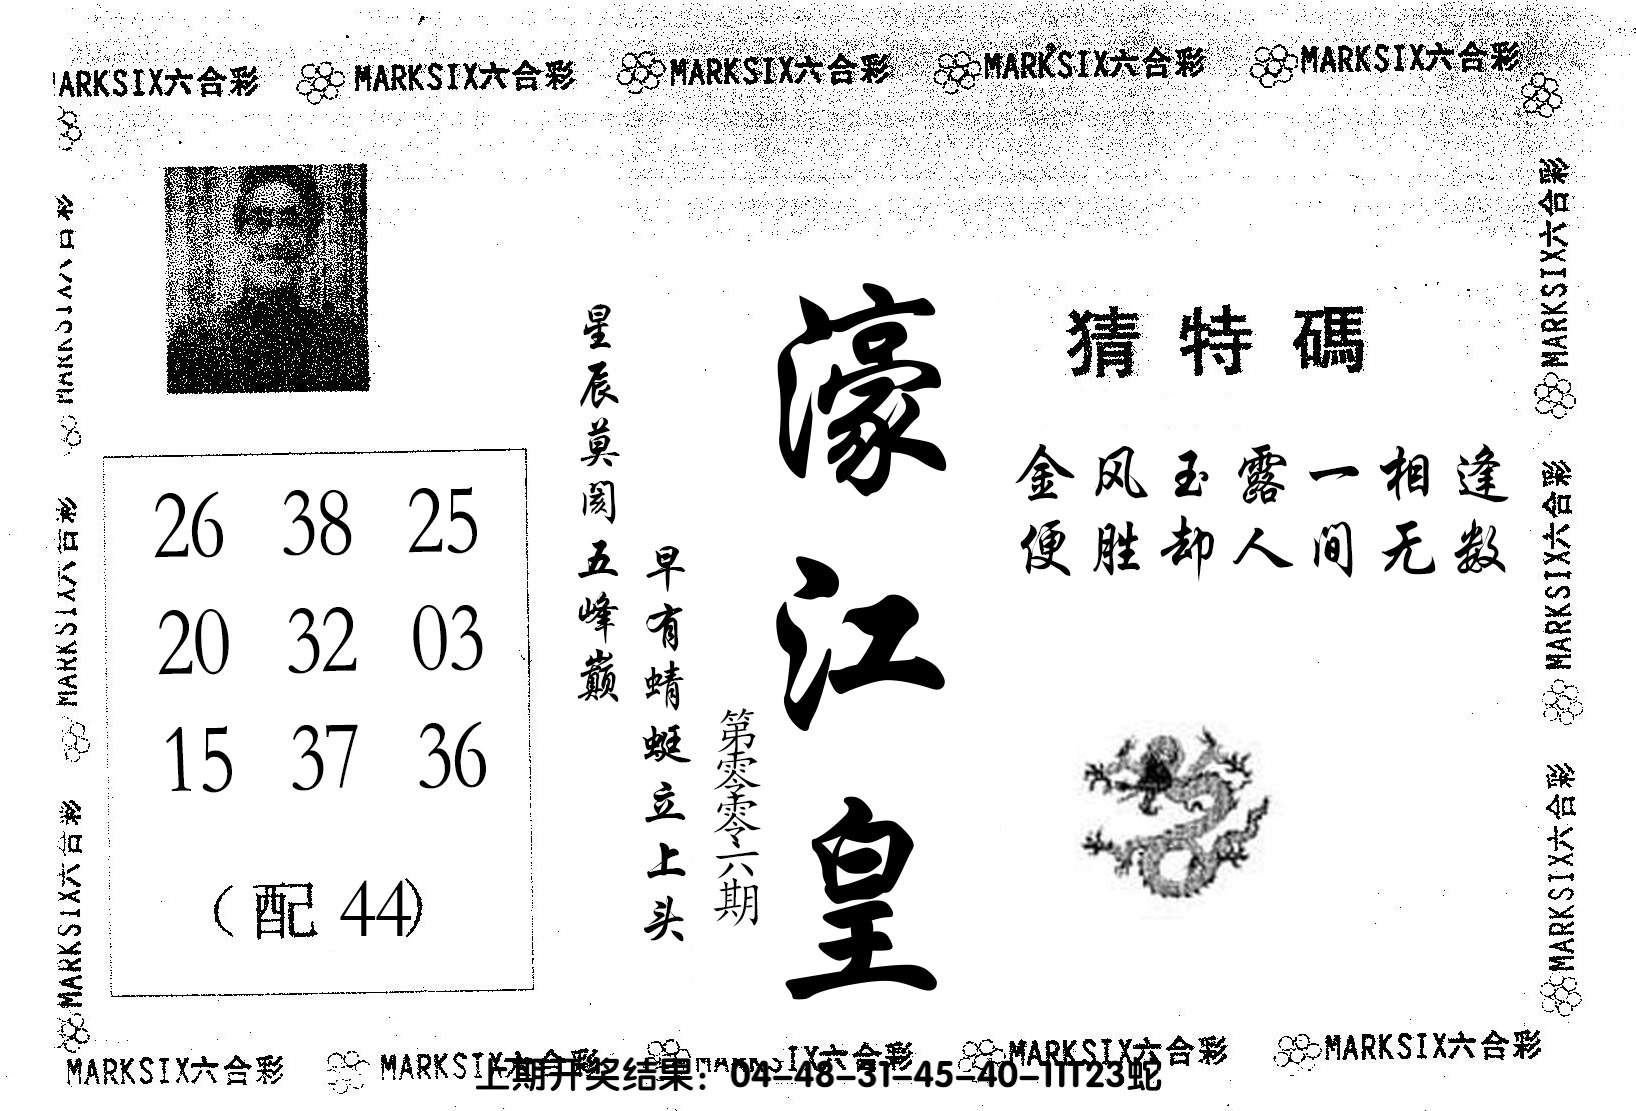 MARKSIX六合彩 MARKSIX六合彩 MARKSIX六合彩 MARKSIX六合彩 MARKSIX六合彩
猜特碼
金风玉露一相逢
便胜却人间无数
濠江皇
第零零六期
早有蜻蜓立上头
星辰莫阂五峰巅
26 38 25
20 32 03
15 37 36
(配 44)
MARKSIX六合彩
MARKSIX六合彩
MARKSIX六合彩
MARKSIX六合彩
MARKSIX六合彩
MARKSIX六合彩
MARKSIX六合彩 MARKSIX六合彩 MARKSIX六合彩 MARKSIX六合彩 MARKSIX六合彩
上期开奖结果：04-48-31-45-40-11T23蛇